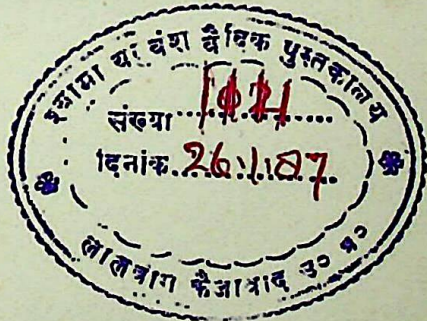 श्यामा यदुवंश वैदिक पुस्तकालय
संख्या 1071
दिनांक 26.1.87
लालबाग फैजाबाद उ० प्र०